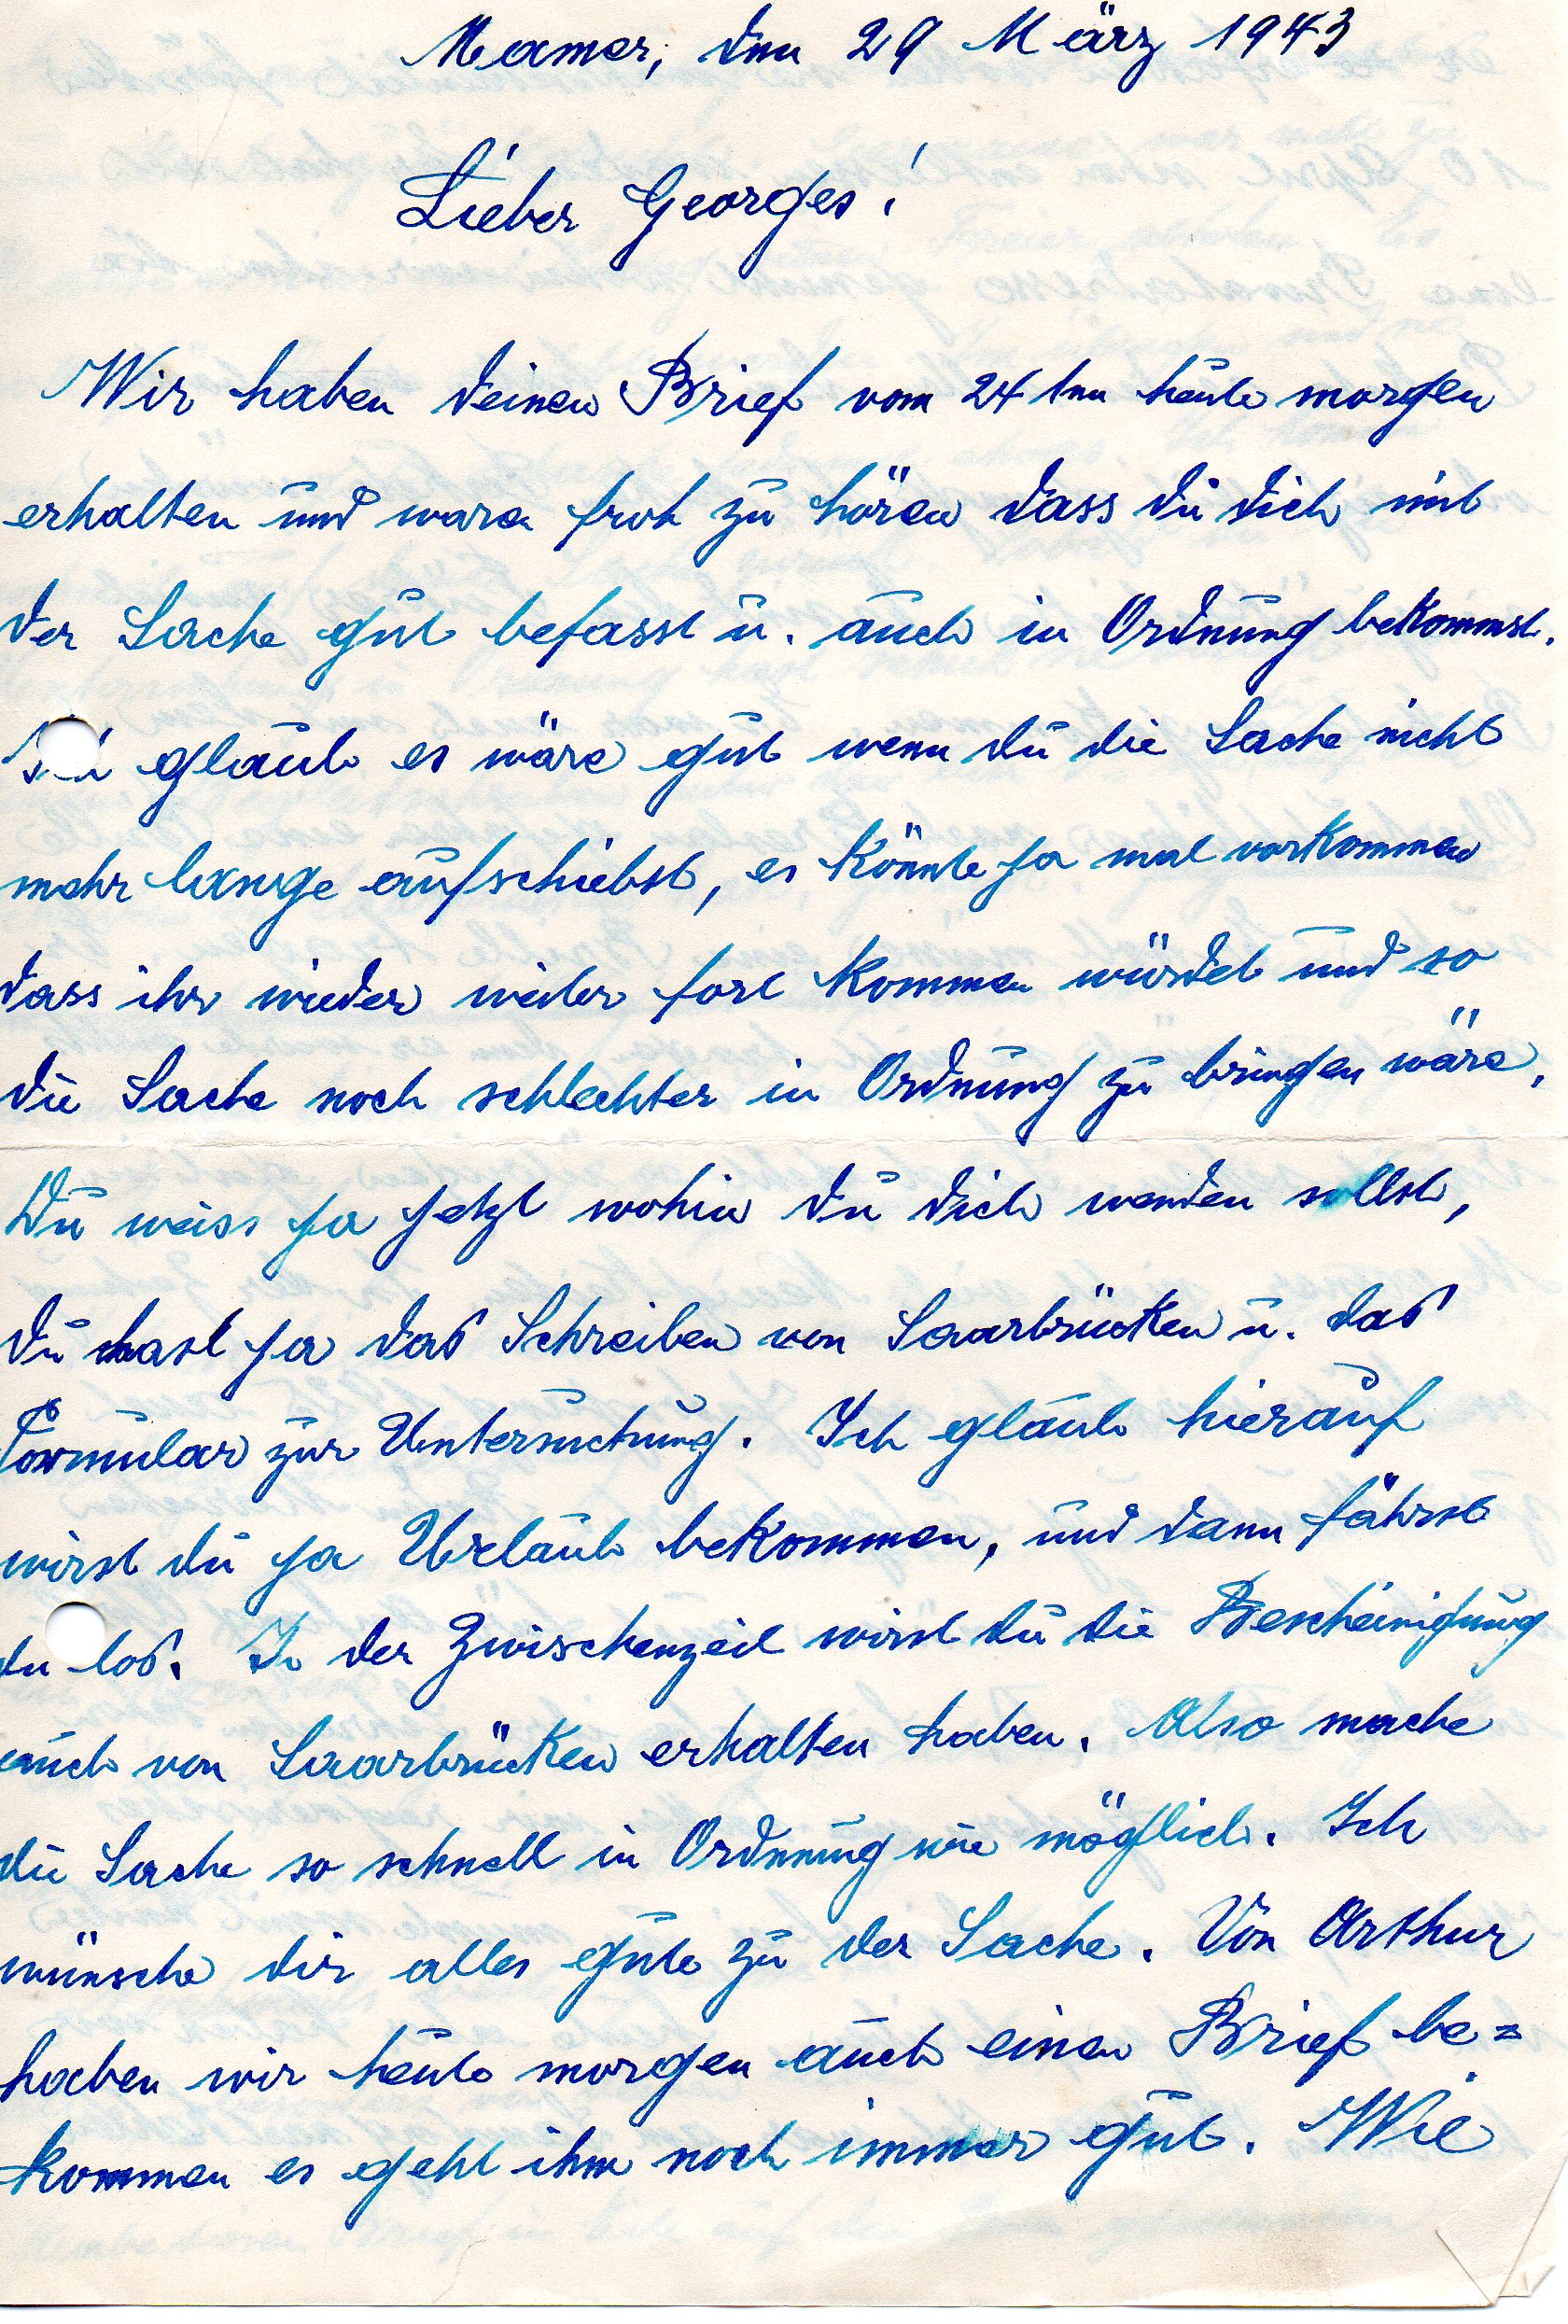 Mamer, den 29 März 1943
Lieber Georges!
Wir haben deinen Brief vom 24ten heute morgen
erhalten und waren froh zu hören dass du dich mit
der Sache gut befasst u. auch in Ordnung bekommst.
Ich glaube es wäre gut wenn du die Sache nicht
mehr lange aufschiebst, es könnte ja mal vorkommen
dass ihr wieder weiter fort kommen würdet und so
die Sache noch schlechter in Ordnung zu bringen wäre,
Du weiss ja jetzt wohin du dich wenden sollst,
du hast ja das Schreiben von Saarbrücken u. das
Formular zur Untersuchung. Ich glaube hierauf
wirst du ja Urlaub bekommen, und dann fährst
du los. In der Zwischenzeit wirst du die Bescheinigung
auch von Saarbrücken erhalten haben. Also mache
die Sache so schnell in Ordnung wie möglich. Ich
wünsche dir alles gute zu der Sache. Von Arthur
haben wir heute morgen auch einen Brief be=
kommen es geht ihm noch immer gut. Wie